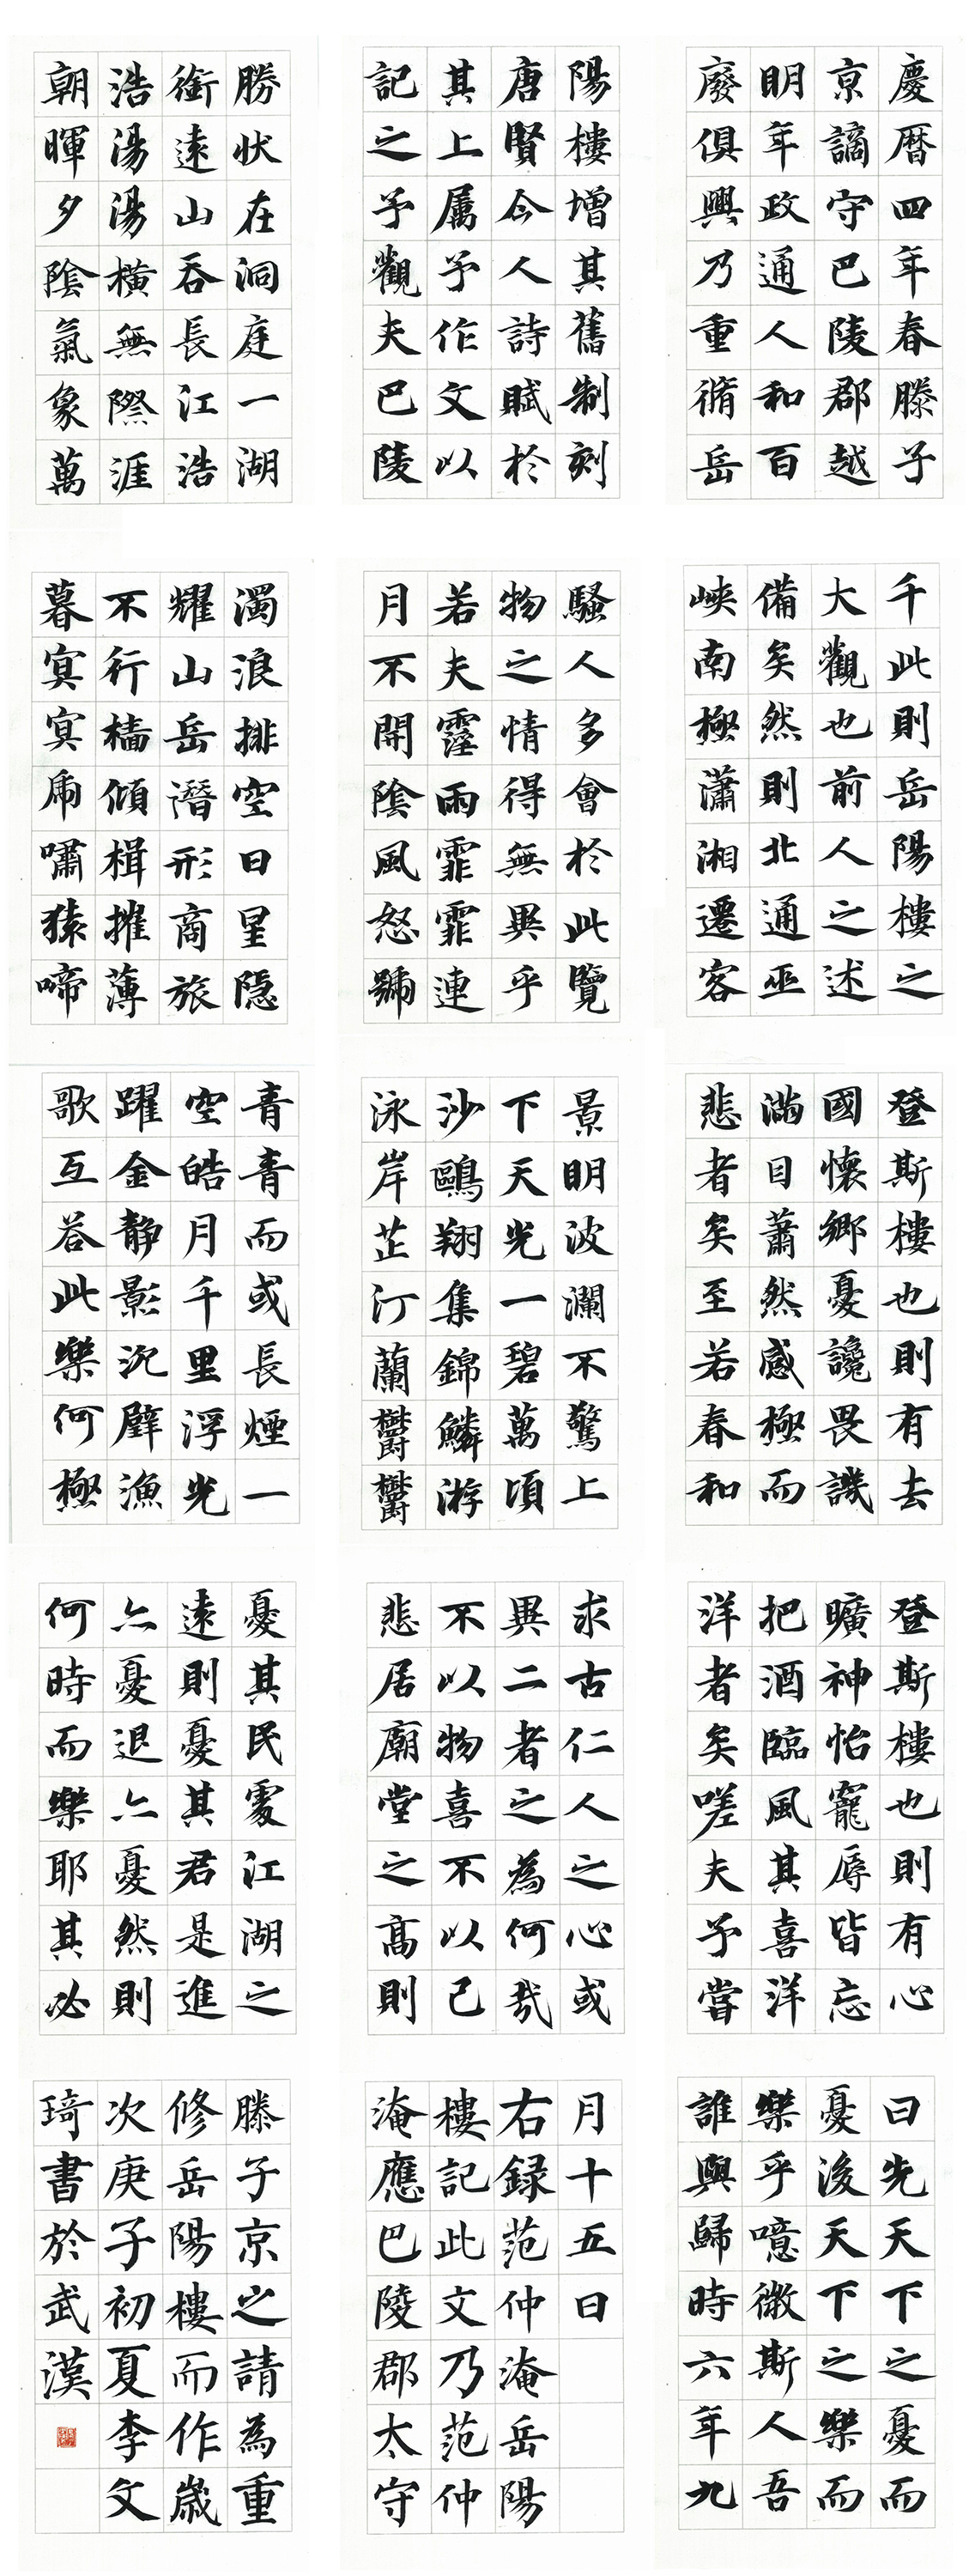 慶暦四年春滕子
京謫守巴陵郡越
明年政通人和百
廢俱興乃重脩岳
陽樓增其舊制刻
唐賢今人詩賦於
其上属予作文以
記之予觀夫巴陵
勝狀在洞庭一湖
銜遠山吞長江浩
浩湯湯橫無際涯
朝暉夕陰氣象萬
千此則岳陽樓之
大觀也前人之述
備矣然則北通巫
峽南極瀟湘遷客
騷人多會於此覽
物之情得無異乎
若夫霪雨霏霏連
月不開陰風怒號
濁浪排空日星隱
耀山岳潛形商旅
不行檣傾楫摧薄
暮冥冥虎嘯猿啼
登斯樓也則有去
國懷鄉憂讒畏譏
滿目蕭然感極而
悲者矣至若春和
景明波瀾不驚上
下天光一碧萬頃
沙鷗翔集錦鱗游
泳岸芷汀蘭欝欝
青青而或長煙一
空皓月千里浮光
躍金静影沉璧漁
歌互答此樂何極
登斯樓也則有心
曠神怡寵辱皆忘
把酒臨風其喜洋
洋者矣嗟夫予嘗
求古仁人之心或
異二者之為何哉
不以物喜不以己
悲居廟堂之高則
憂其民處江湖之
遠則憂其君是進
亦憂退亦憂然則
何時而樂耶其必
曰先天下之憂而
憂後天下之樂而
樂乎噫微斯人吾
誰與歸時六年九
月十五日
右録范仲淹岳陽
樓記此文乃范仲
淹應巴陵郡太守
滕子京之請為重
修岳陽樓而作歲
次庚子初夏李文
琦書於武漢